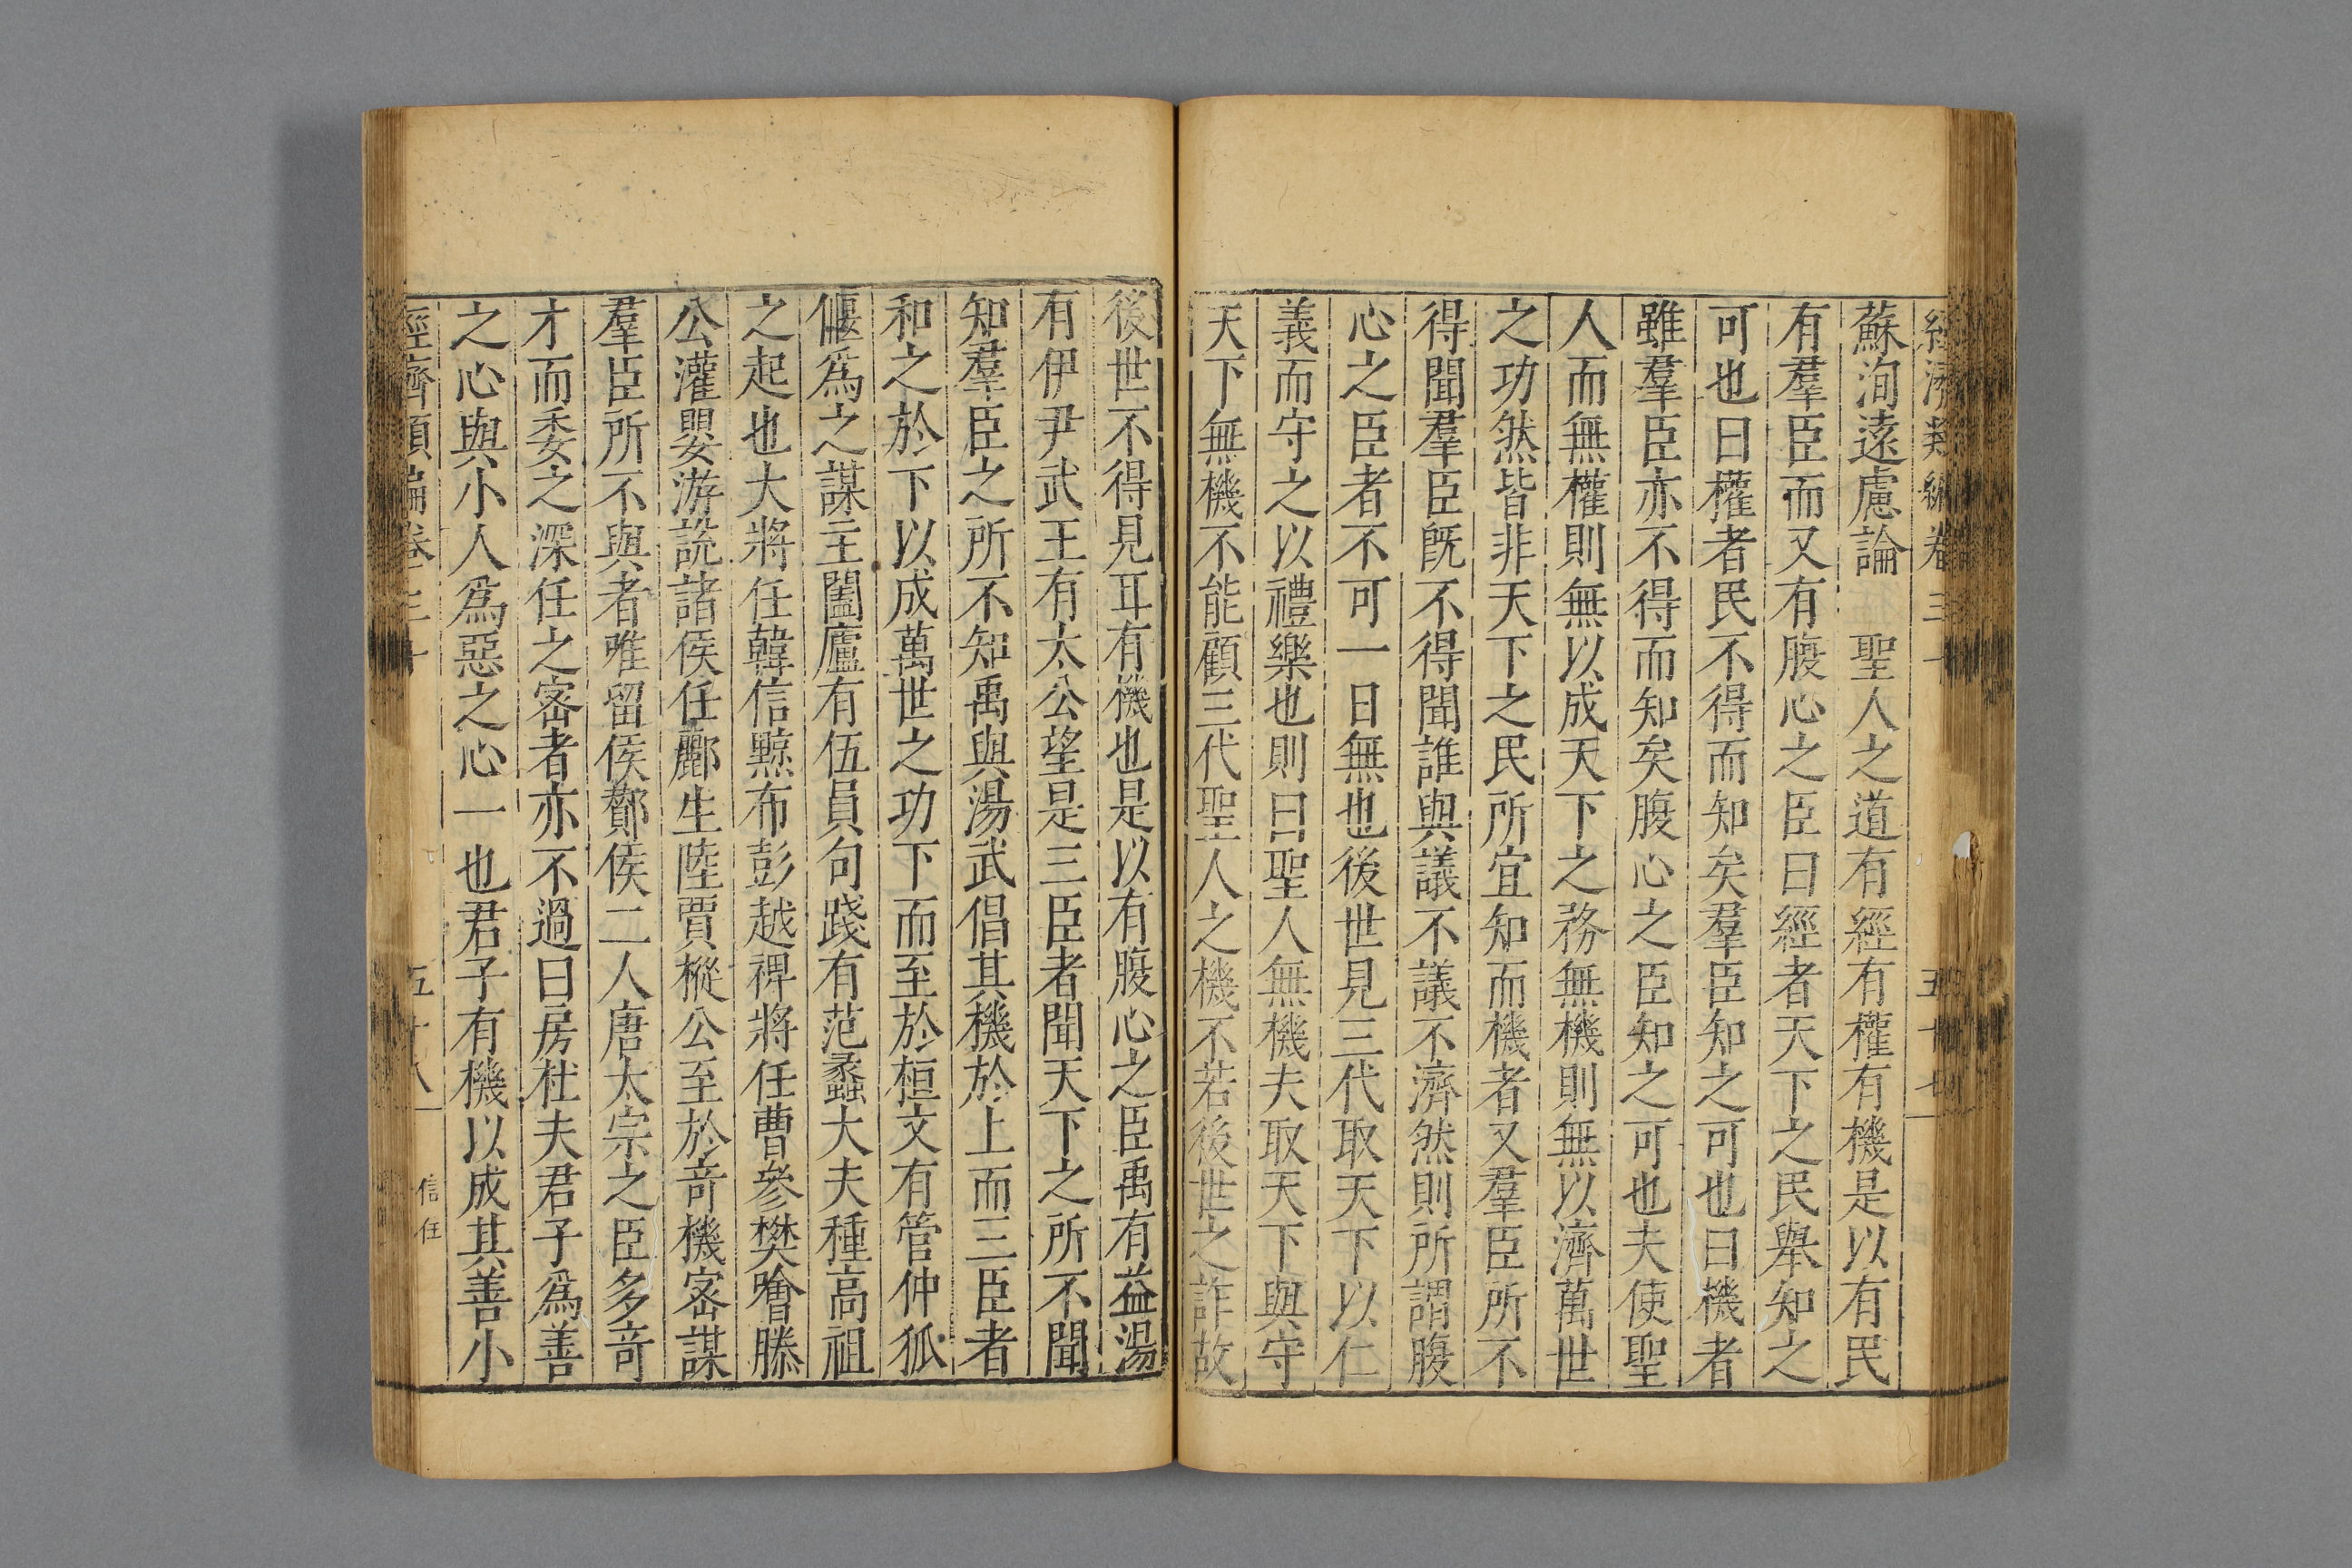 經濟類編卷三十 五十七
蘇洵遠慮論 聖人之道有經有權有機是以有民
有羣臣而又有腹心之臣曰經者天下之民舉知之
可也曰權者民不得而知矣羣臣知之可也曰機者
雖羣臣亦不得而知矣腹心之臣知之可也夫使聖
人而無權則無以成天下之務無機則無以濟萬世
之功然皆非天下之民所宜知而機者又羣臣所不
得聞羣臣旣不得聞誰與議不議不濟然則所謂腹
心之臣者不可一日無也後世見三代取天下以仁
義而守之以禮樂也則曰聖人無機夫取天下與守
天下無機不能顧三代聖人之機不若後世之詐故
後世不得見耳有機也是以有腹心之臣禹有益湯
有伊尹武王有太公望是三臣者聞天下之所不聞
知羣臣之所不知禹與湯武倡其機於上而三臣者
和之於下以成萬世之功下而至於桓文有管仲狐
偃爲之謀主闔廬有伍員句踐有范蠡大夫種高祖
之起也大將任韓信黥布彭越裨將任曹參樊噲滕
公灌嬰游說諸侯任酈生陸賈樅公至於竒機密謀
羣臣所不與者唯留侯酇侯二人唐太宗之臣多竒
才而委之深任之密者亦不過曰房杜夫君子爲善
之心與小人爲惡之心一也君子有機以成其善小
經濟類編卷三十 五十八 信任